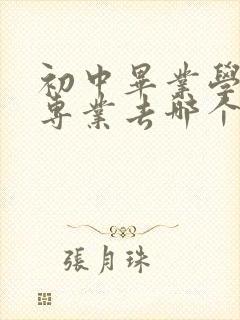 初中畢業學
專業去哪個
張月珠